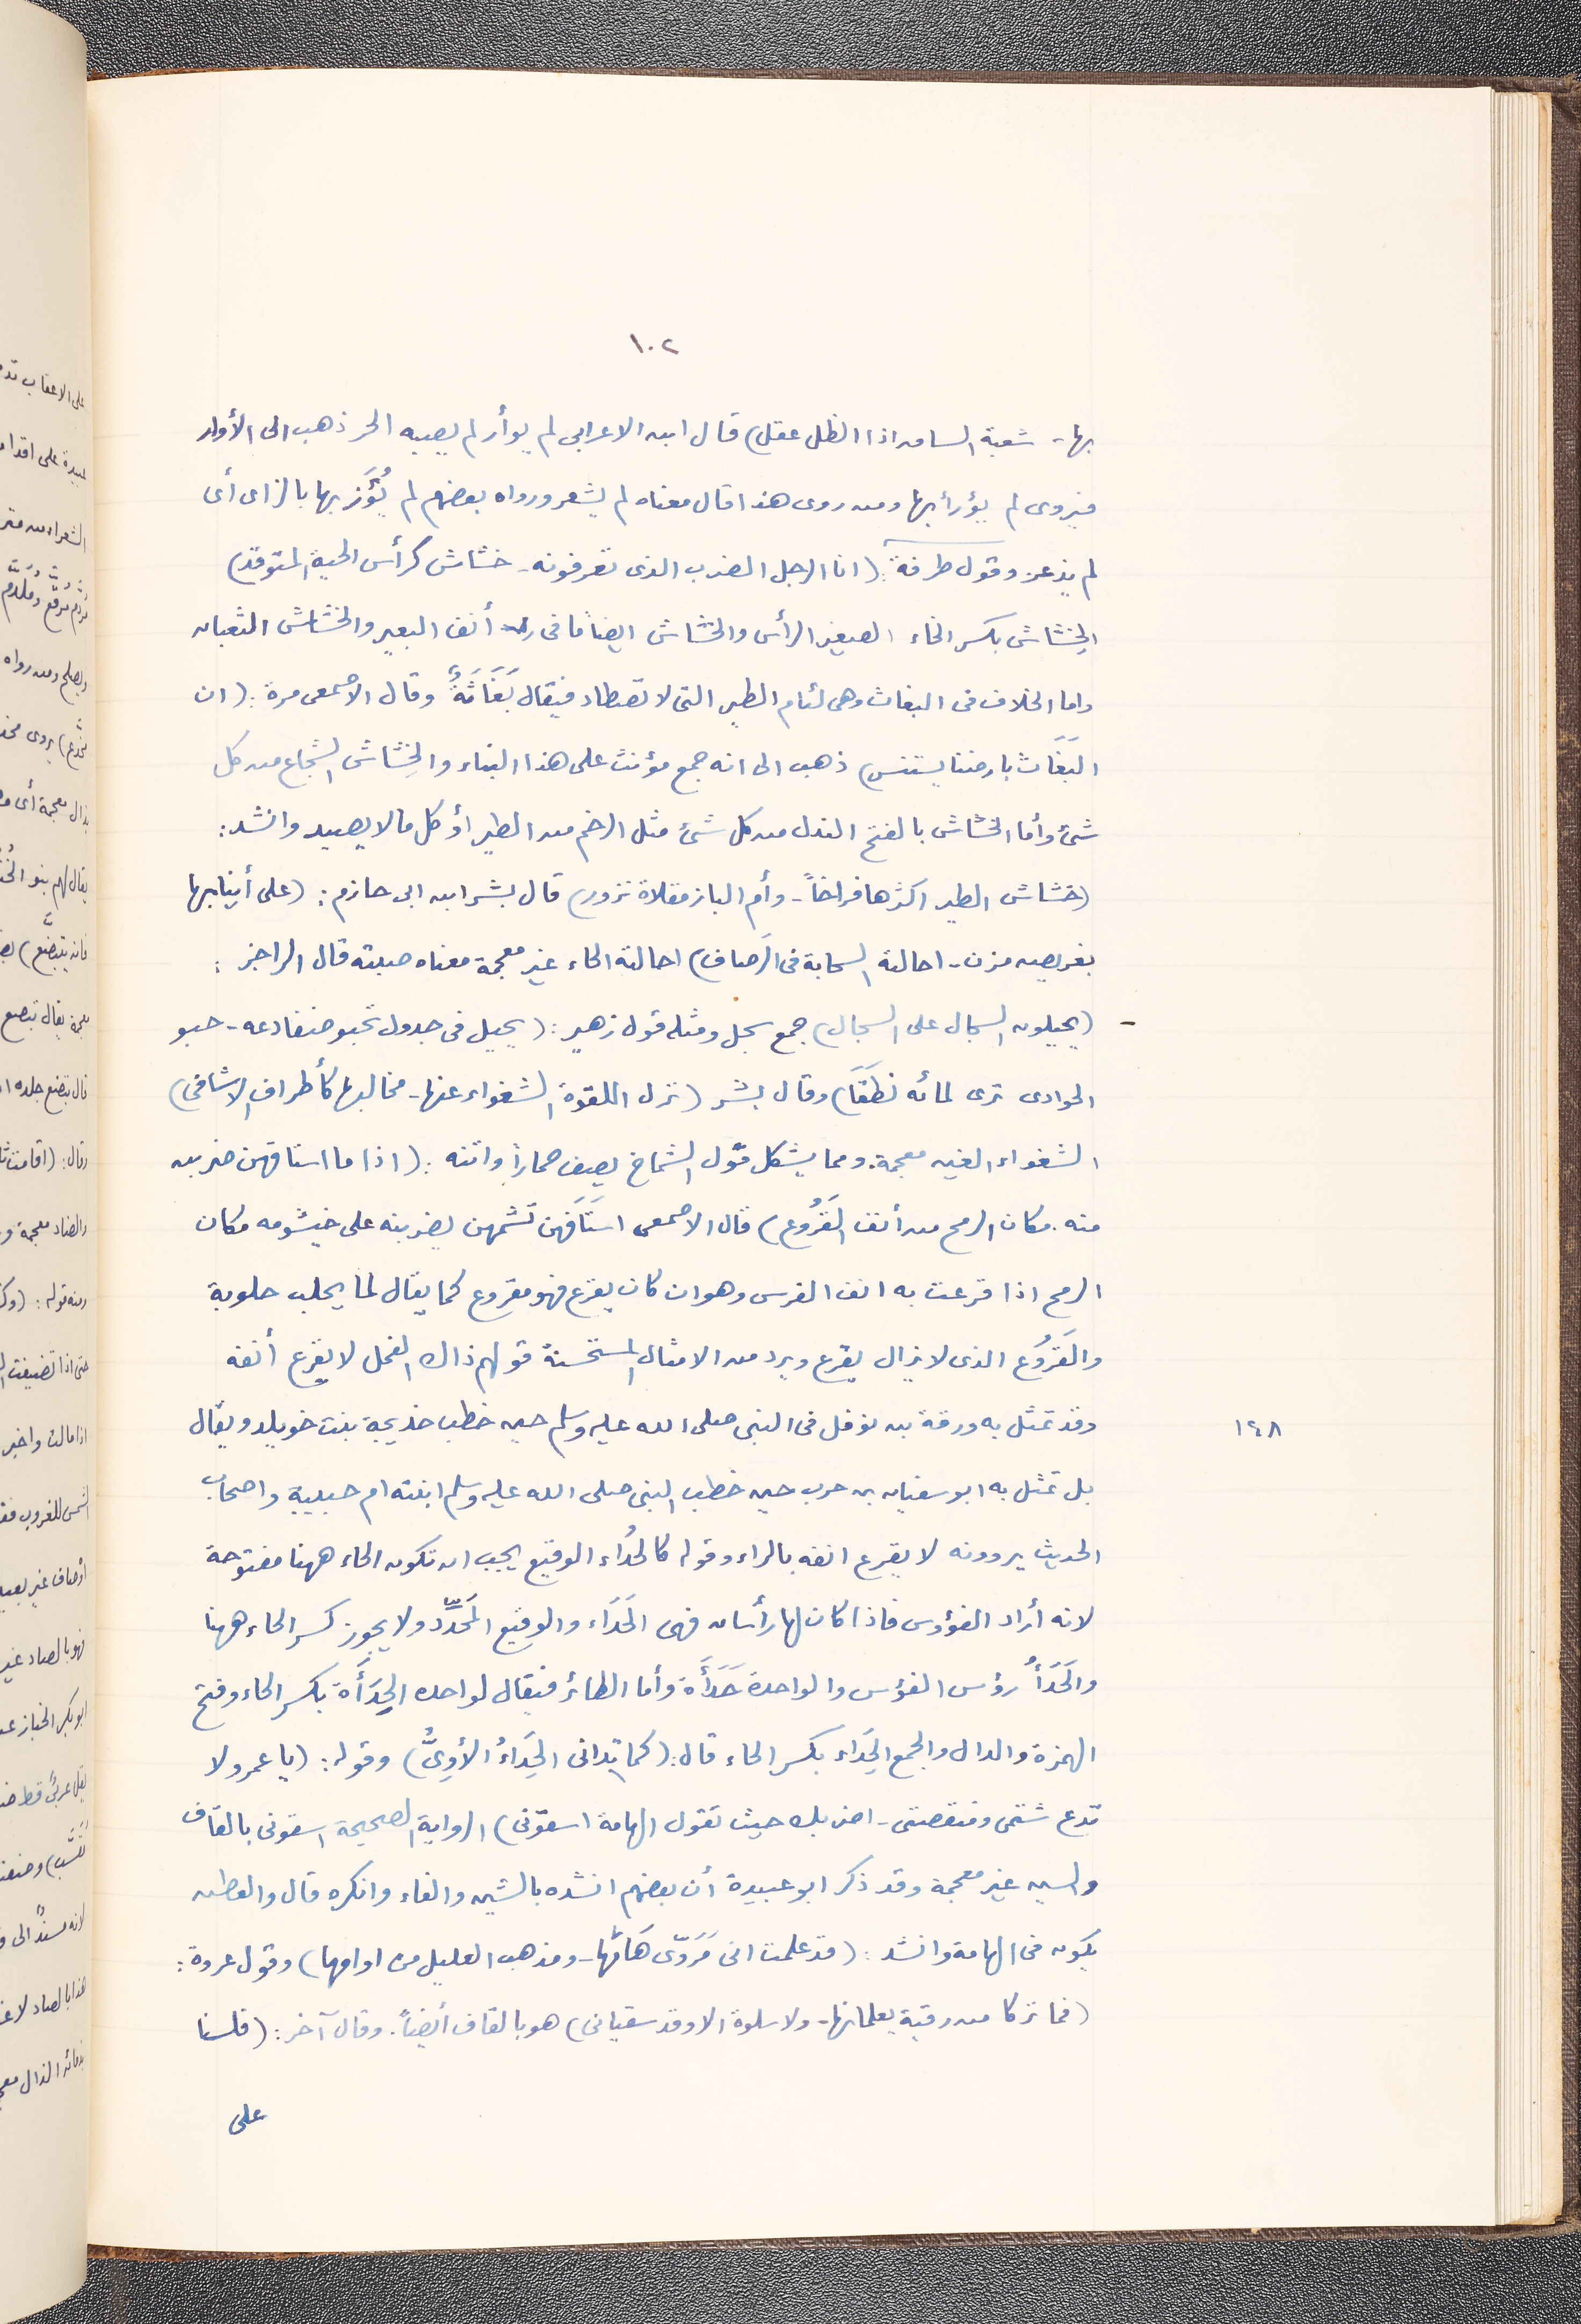 ١٠٢
بها - شعبة الساق اذا الظل عقل) قال ابن الاعرابى لم يوأر لم يصبه الحر ذهب الى الأوار
فيروى لم يؤرأ بها ومن روى هذا قال معناه لم يشعر ورواه بعضهم لم يُؤَز بها بالزاى أى
لم يذعر وقول طرفة: (انا الرجل الضرب الذى تعرفونه - خشاش كرأس الحية المتوقد)
الخِشاش بكسر الخاء الصغير الرأس والخشاش ايضاً ما فى أنف البعير والخشاش الثعبان
واما الخلاف فى البغاث وهى لئام الطير التى لا تصطاد فيقال بَغَاثَةٌ وقال الاصمعى مرة: (ان
البَغَاث بارضنا يستنسر) ذهب الى انه جمع مؤنث على هذا البناء والخِشاش الشجاع من كل
شئ وأما الخشاش بالفتح النذل من كل شئ مثل الرخم من الطير أو كل ما لا يصيد وانشد:
(خشاش الطير اكثرها فراخاً - وأم الباز مقلاة نزور) قال بشر ابن ابى حازم: (على أنيابها
بغريض مزن - احالته السحابة فى الرَصاف) احالته الحاء غير معجمة معناه صبته قال الراجز:
- (يحيلون السجال على السجال) جمع سجل ومثله قول زهير: (يحيل فى جدول تحبو ضفادعه - حبو
الجوارى ترى لمائه نطَقَا) وقال بشر (تزل اللقوة الشغواء عنها - مخالبها كأطراف الاشافى)
الشغواء الغين معجمة. ومما يشكل قول الشماخ يصف حماراً واتنه: (اذا ما استافهن ضربن
منه. مكان الرمح من أنف القَرُوع) قال الاصمعى استَافَهَن تشمهن يضربنه على خيشومه مكان
الرمح اذا قرعت به انف الفرس وهو ان كان يقرع فهو مقروع كما يقال لما يحلب حلوبة
والقَرُوع الذى لا يزال يقرع ويرد من الامثال المستحسنة قولهم ذاك الفحل لا يقرع أنفه
١٤٨ وقد تمثل به ورقة بن نوفل فى النبى صلى الله عليه وسلم حين خطب خديجة بنت خويلد ويقال
بل تمثل به ابو سفيان بن حرب حين خطب النبى صلى الله عليه وسلم ابنته ام حبيبة واصحاب
الحديث يروونه لا يقرع انفه بالراء وقوله كالحُداء الوقيع يجب ان تكون الحاء ههنا مفتوحة
لانه أراد الفؤوس فاذا كان لها رأسان فهى الحَدَاء والوقيع المَحدَّد ولا يجوز كسر الحاء ههنا
والحَدَأُ رؤس الفؤس والواحدة حَدَأَة وأما الطائر فيقال لواحده الحِدَأَة بكسر الحاء وفتح
الهمزة والدال والجمع الحِدَاء بكسر الحاء قال: (كما تدانى الحِدَاءُ الأُوِىُّ) وقوله: (يا عمرو لا
تدع شتمى ومنقصتى - اضربك حيث تقول الهامة اسقونى) الرواية الصحيحة اسقونى بالقاف
والسين غير معجمة وقد ذكر ابو عبيدة أن بعضهم انشده بالشين والفاء وانكره قال والعطش
يكون فى الهامة وانشد: (قد علمت انى مَرَوّى هَامَّها - ومذهب العليل من اوامها) وقول عروة:
(فما تركا من رقية يعلمانها - ولا سلوة الا وقد سقيانى) هو بالقاف أيضاً. وقال آخر: (فلسنا
على